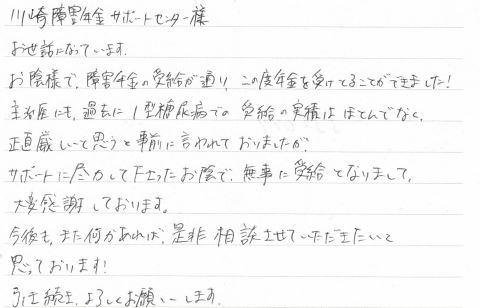 川崎障害年金サポートセンター様
お世話になっています。
お陰様で、障害年金の受給が通り、この度年金を受けとることができました!
主治医にも、過去に1型糖尿病での受給の実績はほとんどなく、
正直厳しいと思うと事前に言われておりましたが、
サポートに尽力して下さったお陰で、無事に受給となりまして、
大変感謝しております。
今後も、また何かあれば、是非相談させていただきたいと
思っております!
引き続き、よろしくお願いします。